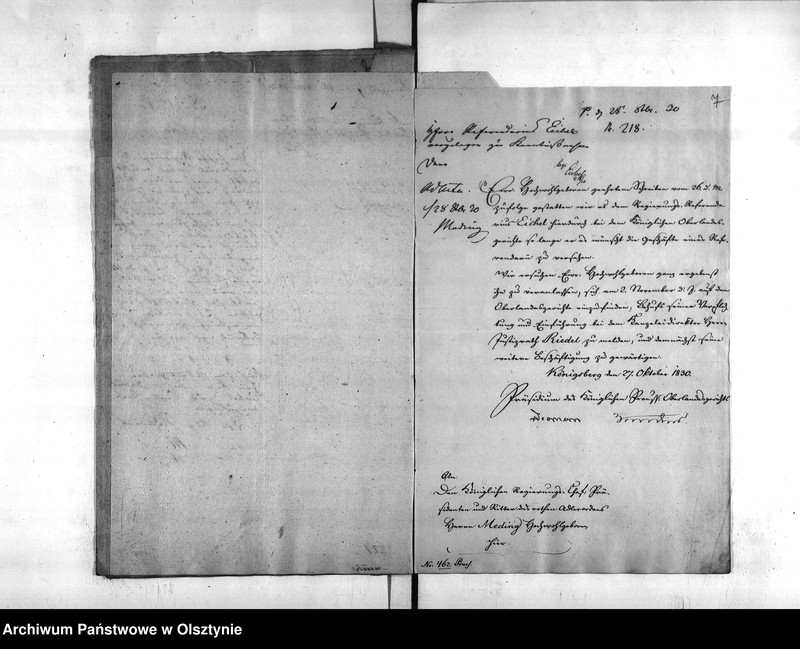 7
P. d 28t. Okt. 30
A. 218.
Herrn Referendarius Eickel
vorzulegen zur Kenntnißnahme
Eickel
ad acta.
28 Okt 30
Meding
Ew. Hochwohlgeboren geehrtem Schreiben vom 26. d. M.
zufolge gestatten wir es dem Regierungs-Referenda-
rius Eickel hierdurch bei dem Königlichen Oberlandes-
gerichte so lange er es wünscht die Geschäfte eines Refe-
rendarii zu versehen.
Wir ersuchen Ew. Hochwohlgeboren ganz ergebenst
ihn zu veranlassen, sich am 2. November d. J. auf dem
Oberlandesgerichte einzufinden, Behufs seiner Verpflich-
tung und Einführung bei dem Kanzleidirektor Herrn
Justizrath Riedel zu melden, und demnächst seine
weitere Beschäftigung zu gewärtigen.
Königsberg den 27. Oktober 1830.
Präsidium des Königlichen Preuß. Oberlandesgerichts
An
Den Königlichen Regierungs-Chef-Prä-
sidenten und Ritter des rothen Adlerordens
Herrn Meding Hochwohlgeboren
hier.
No. 462. Praes.
Archiwum Państwowe w Olsztynie